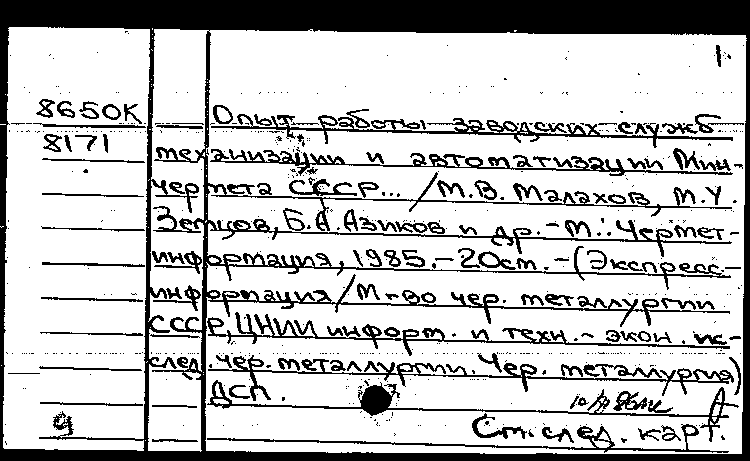 1.
8650К Опыт работы заводских служб
8171 механизации и автоматизации Мин-
чермета СССР... / М.В. Малахов, М.У.
Земцов, Б.А. Азиков и др. - М.: Чермет-
информация, 1985. - 20 ст. - (Экспресс-
информация / М-во чер. металлургии
СССР, ЦНИИ информ. и техн.-экон. ис-
след. чер. металлургии. Чер. металлургия)
ДСП.
g См. след. карт.